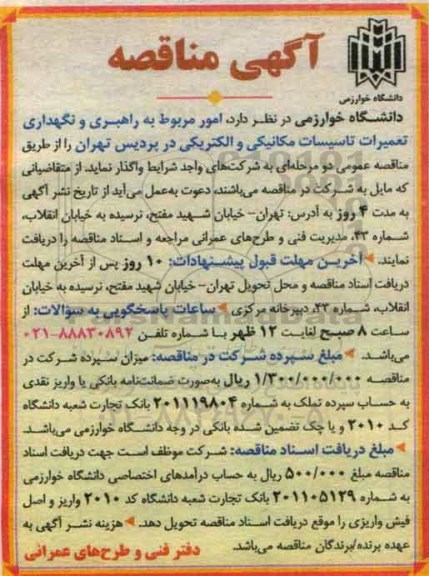 آگهی مناقصه
دانشگاه خوارزمی
دانشگاه خوارزمی در نظر دارد، امور مربوط به راهبری و نگهداری
تعمیرات تاسیسات مکانیکی و الکتریکی در پردیس تهران را از طریق
مناقصه عمومی دو مرحله‌ای به شرکت‌های واجد شرایط واگذار نماید. از متقاضیانی
که مایل به شرکت در مناقصه می‌باشند، دعوت به‌عمل می‌آید از تاریخ نشر آگهی
به مدت ۴ روز به آدرس: تهران- خیابان شهید مفتح، نرسیده به خیابان انقلاب،
شماره ۴۳، مدیریت فنی و طرح‌های عمرانی مراجعه و اسناد مناقصه را دریافت
نمایند. آخرین مهلت قبول پیشنهادات: ۱۰ روز پس از آخرین مهلت
دریافت اسناد مناقصه و محل تحویل تهران- خیابان شهید مفتح، نرسیده به خیابان
انقلاب، شماره ۴۳، دبیرخانه مرکزی ساعات پاسخگویی به سؤالات: از
ساعت ۸ صبح لغایت ۱۲ ظهر با شماره تلفن ۸۸۸۳۰۸۹۲-۰۲۱
می‌باشد. مبلغ سپرده شرکت در مناقصه: میزان سپرده شرکت در
مناقصه ۱/۳۰۰/۰۰۰/۰۰۰ ریال به‌صورت ضمانت‌نامه بانکی یا واریز نقدی
به حساب سپرده تملک به شماره ۲۰۱۱۱۹۸۰۴ بانک تجارت شعبه دانشگاه
کد ۲۰۱۰ و یا چک تضمین شده بانکی در وجه دانشگاه خوارزمی می‌باشد.
مبلغ دریافت اسناد مناقصه: شرکت موظف است جهت دریافت اسناد
مناقصه مبلغ ۵۰۰/۰۰۰ ریال به حساب درآمدهای اختصاصی دانشگاه خوارزمی
به شماره ۲۰۱۱۰۵۱۲۹ بانک تجارت شعبه دانشگاه کد ۲۰۱۰ واریز و اصل
فیش واریزی را موقع دریافت اسناد مناقصه تحویل دهد. هزینه نشر آگهی به
عهده برنده/برندگان مناقصه می‌باشد.
دفتر فنی و طرح‌های عمرانی